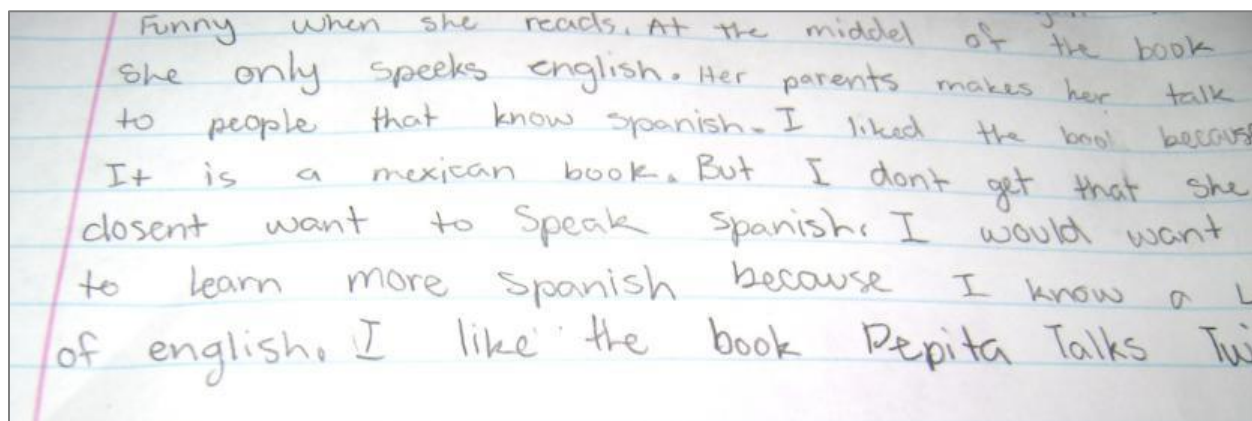 Funny when she reads. At the middel of the book
she only speeks english. Her parents makes her talk
to people that know spanish. I liked the bool because
It is a mexican book. But I dont get that she
dosent want to speak spanish. I would want
to learn more spanish because I know a
of english. I like the book Pepita Talks